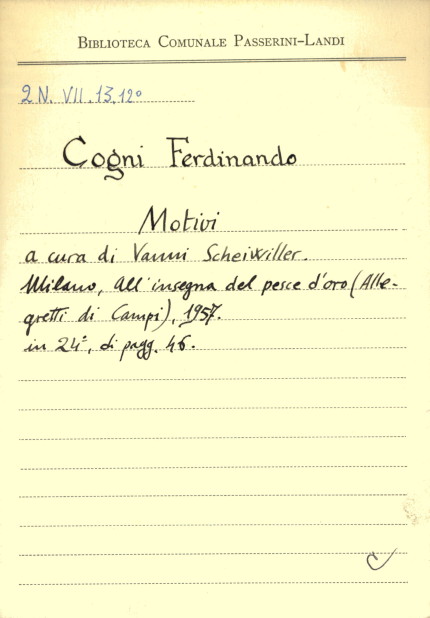 BIBLIOTECA COMUNALE PASSERINI-LANDI
2 N. VII. 13. 12°
Cogni Ferdinando
Motivi
a cura di Vanni Scheiwiller.
Milano, All'insegna del pesce d'oro (Alle-
gretti di Campi), 1957.
in 24°, di pagg. 46.